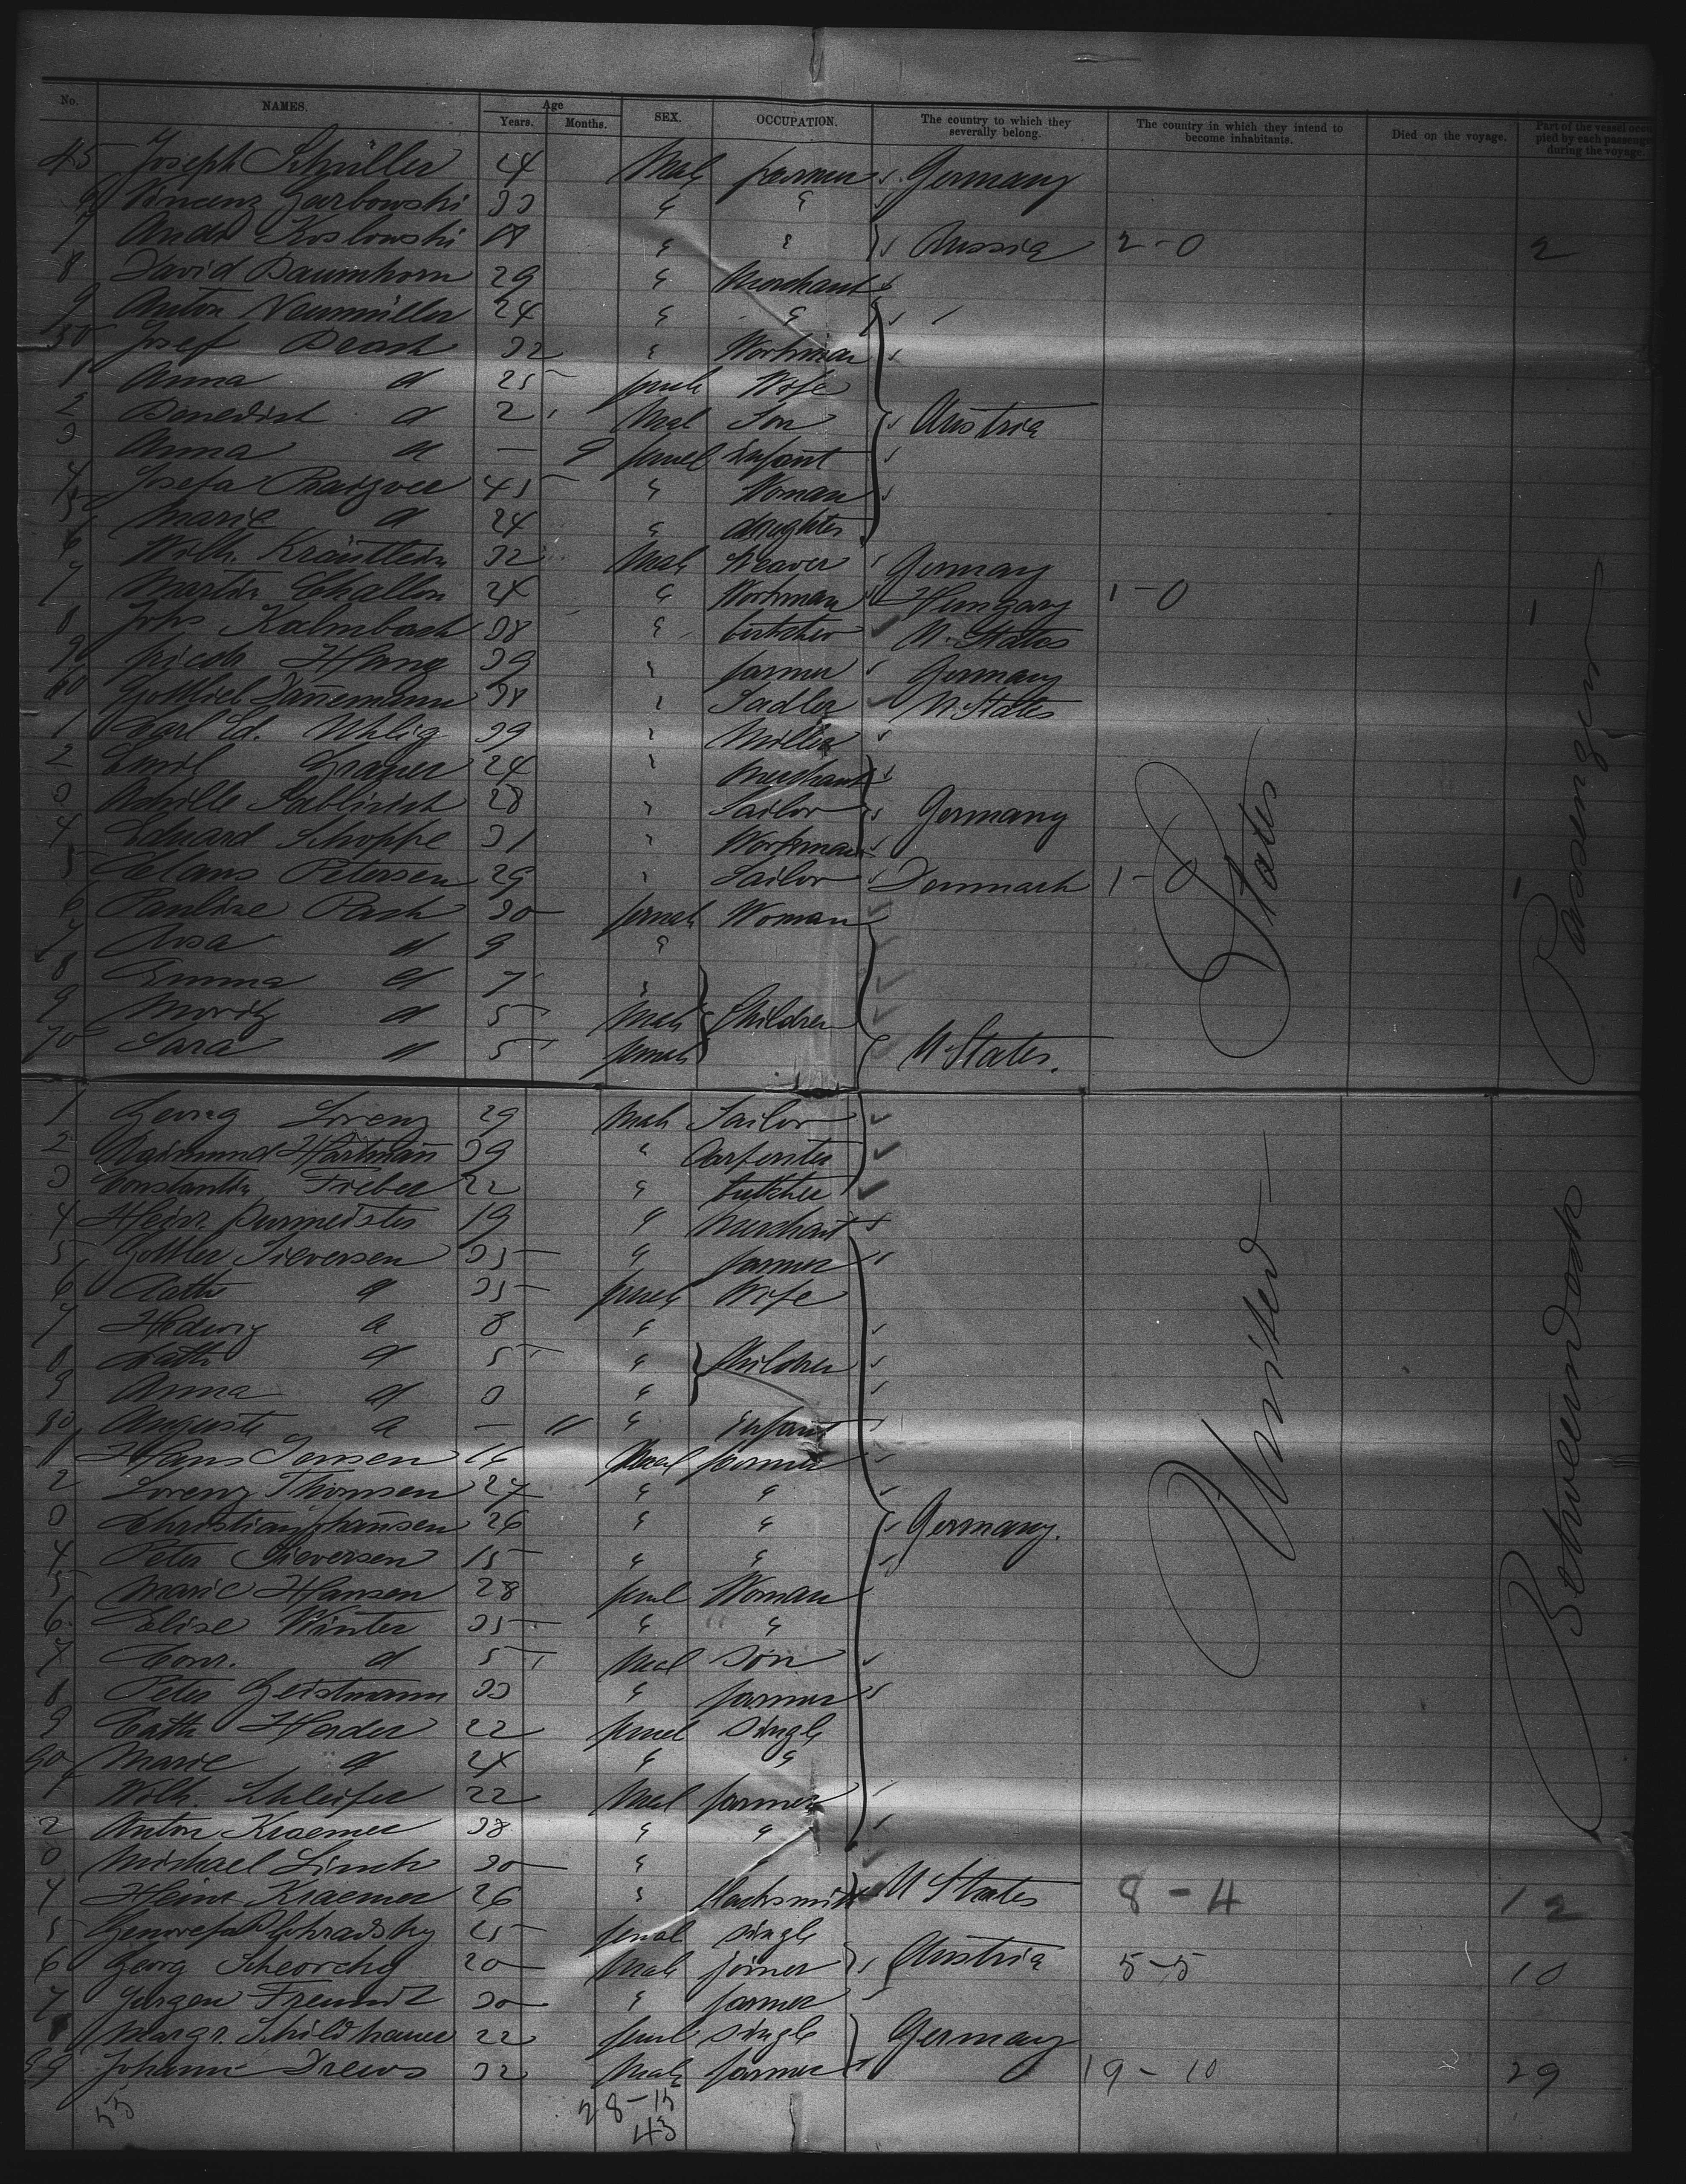 No. NAMES. Age Years. Months. SEX. OCCUPATION. The country to which they severally belong. The country in which they intend to become inhabitants. Died on the voyage. Part of the vessel occupied by each passenger during the voyage.
45 Joseph Schuller 24 Male farmer Germany
6 Vincenz Garbowski 33 " "
7 Andr. Koslowski 18 " " Russia 2-0 2
8 David Baumhorn 29 " Merchant
9 Anton Neumüller 24 " "
50 Josef 32 " Workman
1 Anna d 25 femele Wife
2 Benedict d 2 Mal Son Austria
3 Anna d — 9 femel infant
4 Josefa 45 " Woman
5 Marie d 24 " daughter
6 Wilh. Kräutlein 32 Male Weaver Germany
7 Martin Challon 24 " Workman Hungary 1-0 1
8 Johs Kalmbach 38 " butcher U. States
9 friedr Hang 39 " farmer Germany
60 Gottlieb Dannemann 38 " Sadler U. States
1 Carl Ed. Uhlig 39 " Miller
2 Emil 24 " Merchant
3 28 " Sailor Germany
4 Eduard Schoppe 31 " Workman
5 Claus Petersen 29 " Sailor Denmark 1-0 1
6 Pauline Pach 30 female Woman
7 Rosa d 9 "
8 Emma d 7 "
9 Moritz d 5 Male Children
70 Sara d 5 female U States.
1 Georg Lorenz 29 Male Sailor
2 Raimund Hartmann 39 " Carpenter
3 Constantin Treber 22 " butcher
4 Heinr. Purmeister 19 " Merchant
5 Gottlier Sieversen 35 " farmer
6 Cath d 35 female Wife
7 Hedwig d 8 "
8 Cath d 5 " Children
9 Anna d 3 "
80 Auguste d — 11 " Infant
1 Hans Jensen 16 Male farmer
2 Lorenz Thomsen 27 " "
3 Christian Johannsen 26 " " Germany.
4 Peter Sieversen 15 " "
5 Marie Hansen 28 femel Woman
6 Elise Winter 35 " "
7 Conr. d 5 Mal Son
8 Peter Geistmann 33 " farmer
9 Cath Harder 22 femel Single
90 Marie d 24 " "
1 Wilh. Schleifer 22 Mal farmer
2 Anton Kraemer 38 " "
3 Michael Linck 30 " "
4 Heinr Kraemer 26 " blacksmith U States 8-4 12
5 25 femal single
6 Georg 20 Male joiner Austria 5-5 10
7 Jürgen Freundt 30 " farmer
8 Margr. Schildhauer 22 femal single Germany
99 Johann Drews 32 Male farmer 19-10 29
55 28-15
43
United States
Between Deck Passengers